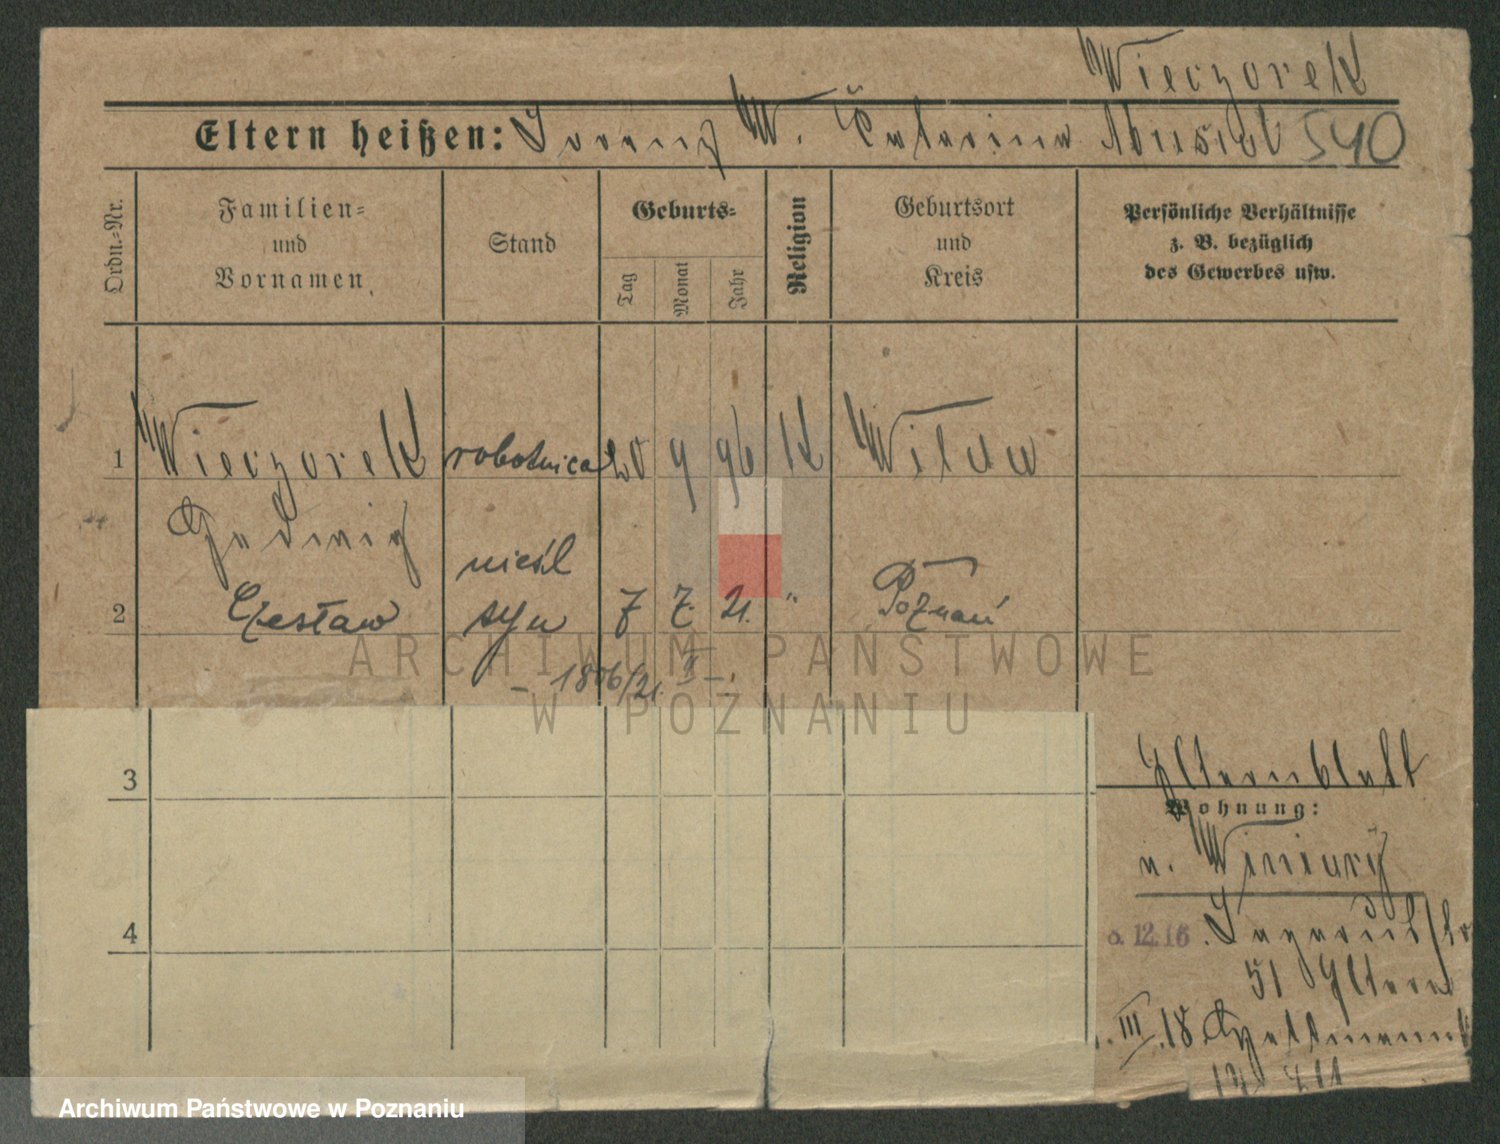 Wieczorek
Eltern heißen: Lorenz W. Katarina 540
Ordn.-Nr.
Familien-
und
Vornamen
Stand
Geburts-
Tag
Monat
Jahr
Religion
Geburtsort
und
Kreis
Persönliche Verhältnisse
z. B. bezüglich
des Gewerbes usw.
1 Wieczorek robotnica 20 9 96 K Wilda
Hedwig
nieśl
2 Czesław syn 7 7. 21. " Poznań
- 1806/21. II -.
3
Elternblatt
Wohnung:
n. Winiary
4
12.16. 
51 Eltern
III.18
Archiwum Państwowe w Poznaniu
ARCHIWUM PAŃSTWOWE
W POZNANIU